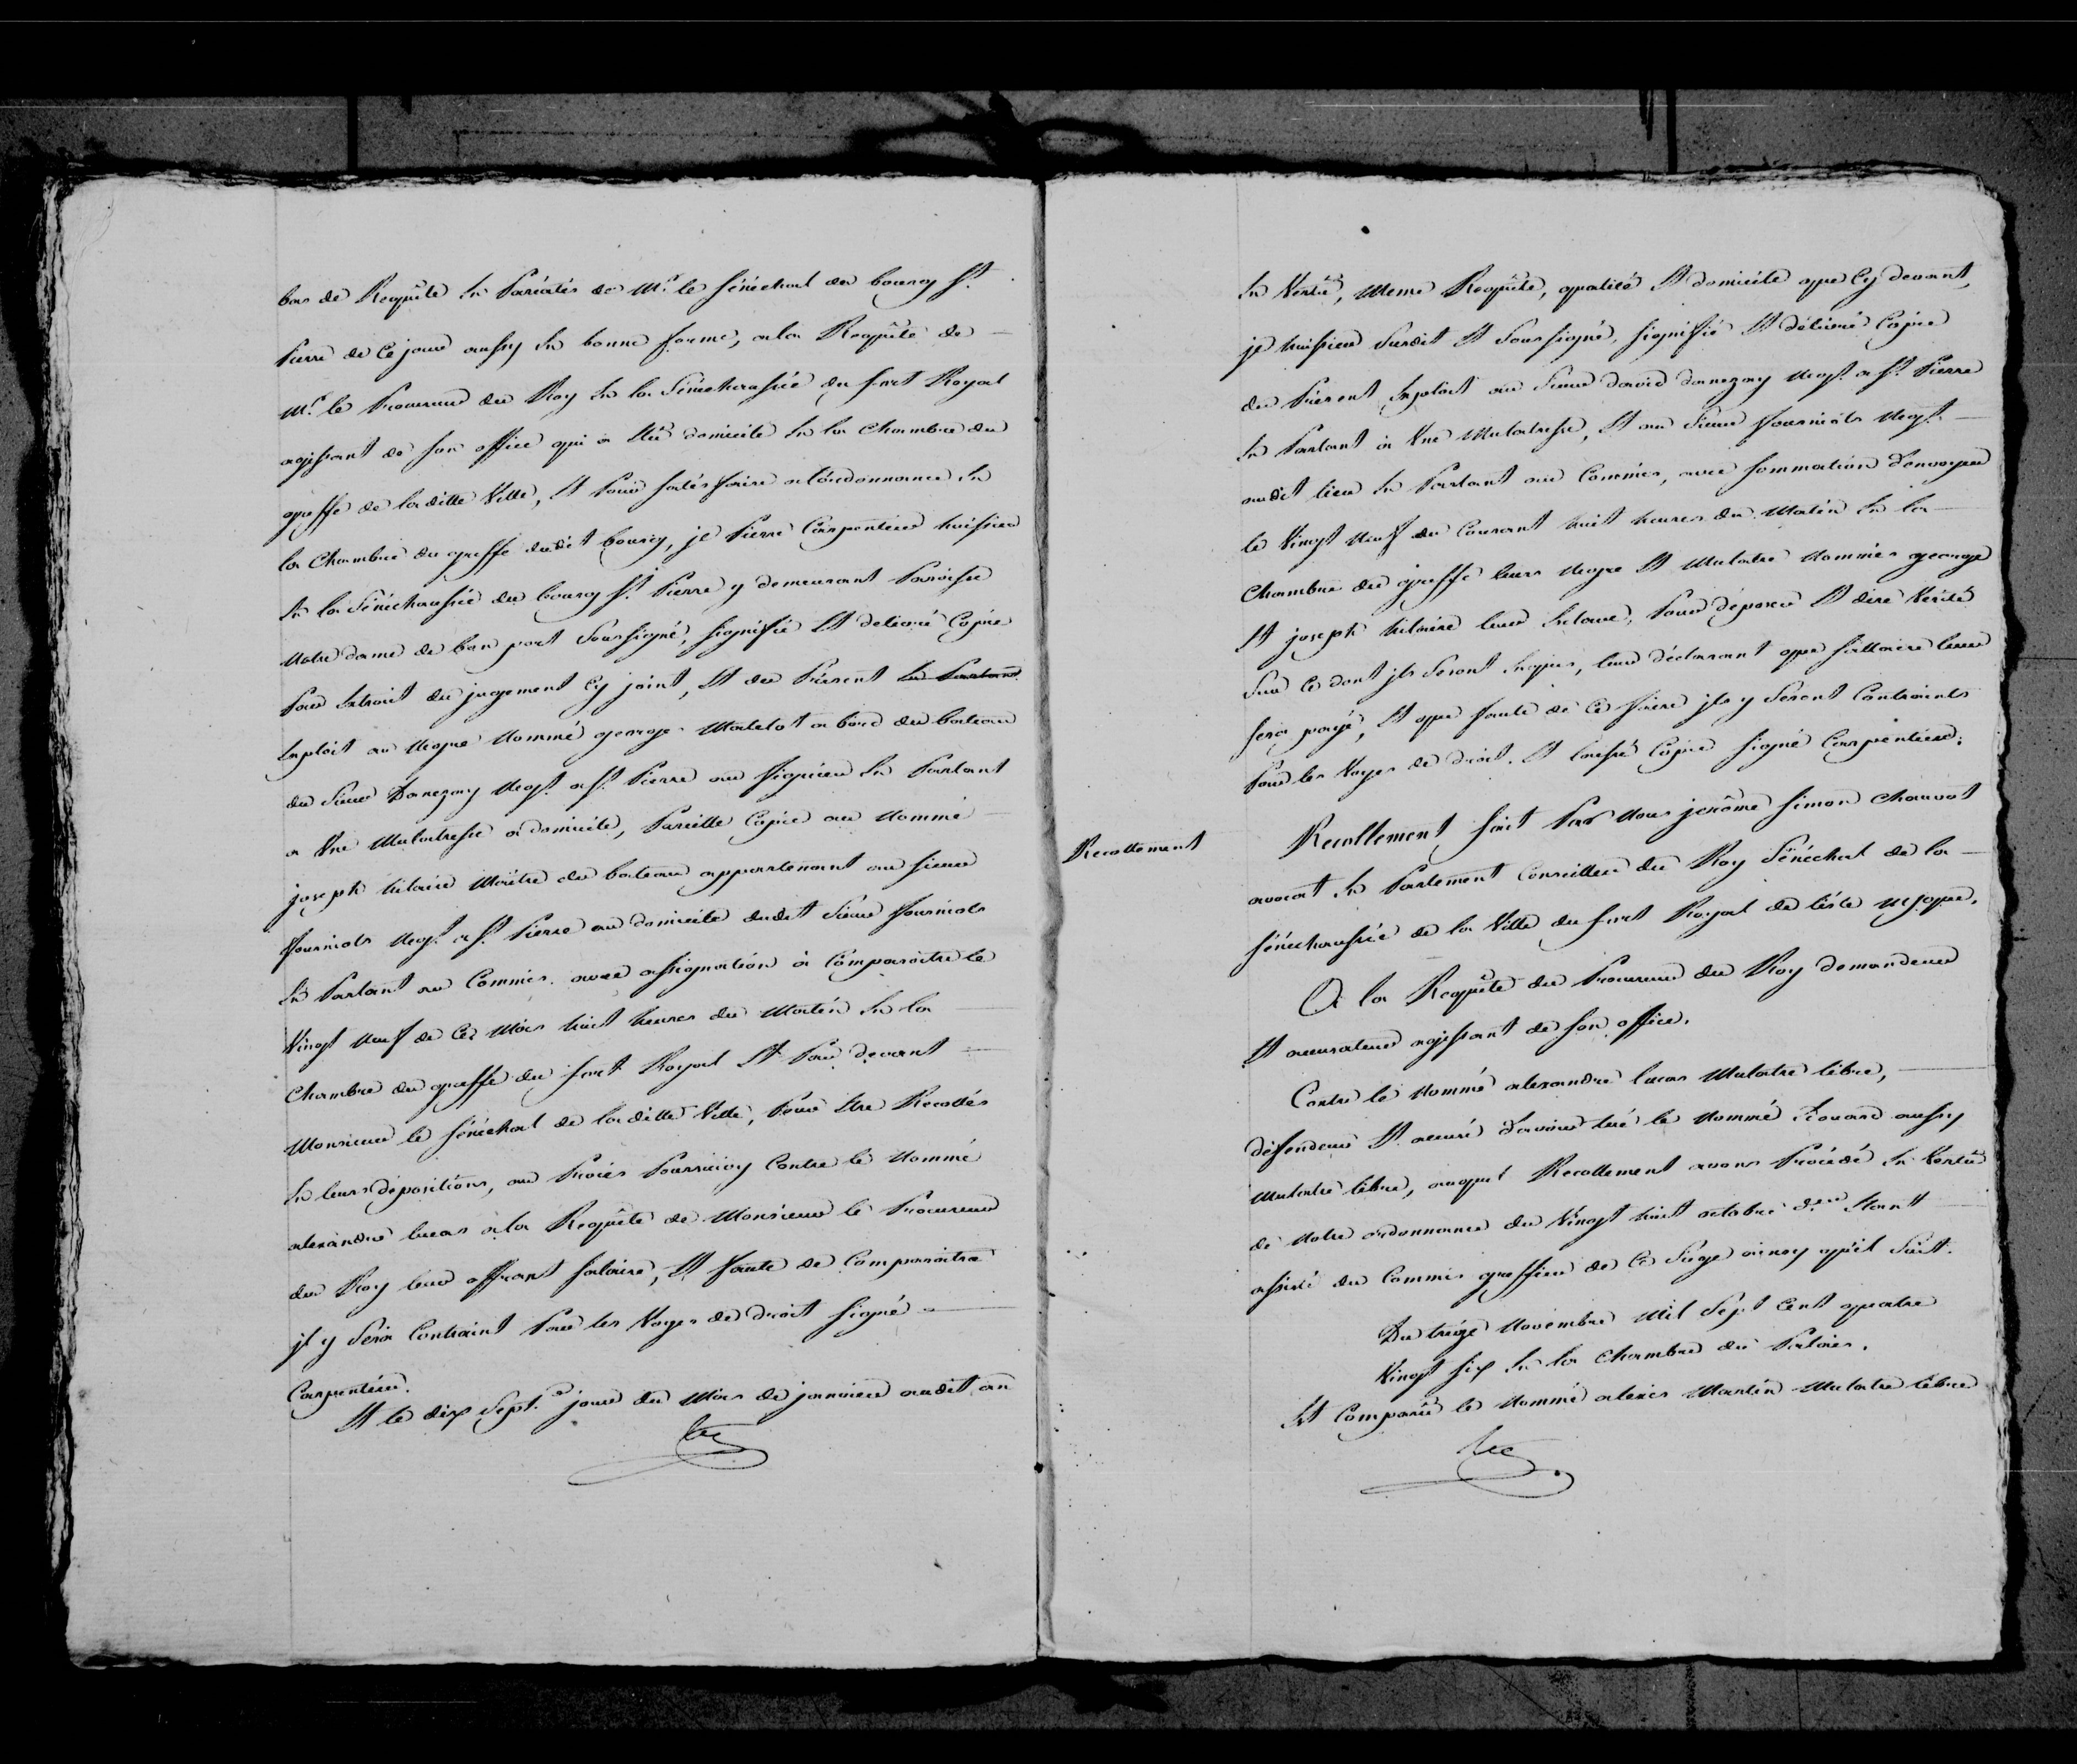 bas de Requête en Pareatis de Mr. le Sénéchal du bourg St.
Pierre de ce jour aussy en bonne forme, a la Requête de
Mr. le Procureur du Roy en la Sénéchaussée du fort Royal
agissant de son office qui a élu domicile en la Chambre du
greffe de laditte Ville, Et pour satisfaire a l'ordonnance en
la Chambre du greffe dudit bourg, je Pierre Carpentier huissier
en la Sénéchaussée du bourg St. Pierre y demeurant Paroisse
Notre dame de bon port Soussigné, signifié Et délivré Copie
Par Extrait du jugement Cy joint, Et du Présent en Parlant
Exploit au Negre Nommé george Matelot a bord du bateau
du Sieur Danezay Negt. a St. Pierre au figuier En Parlant
a Une Mulatresse a domicile, Pareille Copie au Nommé
joseph hilaire Maître du bateau appartenant au sieur
fourniols Negt. a St. Pierre au domicile dudit Sieur fourniols
En Parlant au Commis. avec assignation à Comparoître le
Vingt Neuf de Ce Mois huit heures du Matin En la
Chambre du greffe du fort Royal Et Par devant
Monsieur le Sénéchal de laditte Ville, Pour Etre Recollés
En leurs dépositions, au Procès Poursuivy Contre le Nommé
alexandre lucas a la Requête de Monsieur le Procureur
du Roy leur offrant salaire, Et faute de Comparoitre
jl y Sera Contraint Par les Voyes de droit signé
Carpentier.
Et le dix Sept.e jour du Mois de janvier audit an
En Vertu, Meme Requête, qualité Et domicile que Cy devant,
je huissier Susdit Et Soussigné, signifié Et délivré Copie
du Présent Exploit au Sieur david danezay Negt. a St. Pierre
En Parlant à Une Mulatresse, Et au Sieur fourniols Negt.
audit lieu En Parlant au Commis, avec sommation d'envoyer
le Vingt Neuf du Courant huit heures du Matin En la
Chambre du greffe leurs Negre Et Mulatre Nommés george
Et joseph hilaire leur Esclave, Pour déposer Et dire Verité
Sur Ce dont jls Seront Enquis, leur déclarant que sallaire leur
sera payé, Et que faute de Ce faire jls y Seront Contraints
Par les Voyes de droit. Et laissé Copie signé Carpentier.
Recollement
Recollement fait Par Nous jerôme simon Chauvot
avocat En Parlement Conseiller du Roy Sénéchal de la
Sénéchaussée de la Ville du fort Royal de l'isle Mque.
A la Requête du Procureur du Roy demandeur
Et accusateur agissant de son office.
Contre le Nommé alexandre lucas Mulatre libre,
défendeur Et accusé d'avoir tué le Nommé Edouard aussy
Mulatre libre, auquel Recollement avons Procédé En Vertu
de Notre ordonnance du Vingt huit octobre der. Etant
assisté du Commis greffier de Ce Siége ainsy qu'il Suit.
Du treize Novembre Mil Sept Cent quatre
Vingt six En la Chambre du Palais.
Est Comparu le Nommé alexis Martin Mulatre libre